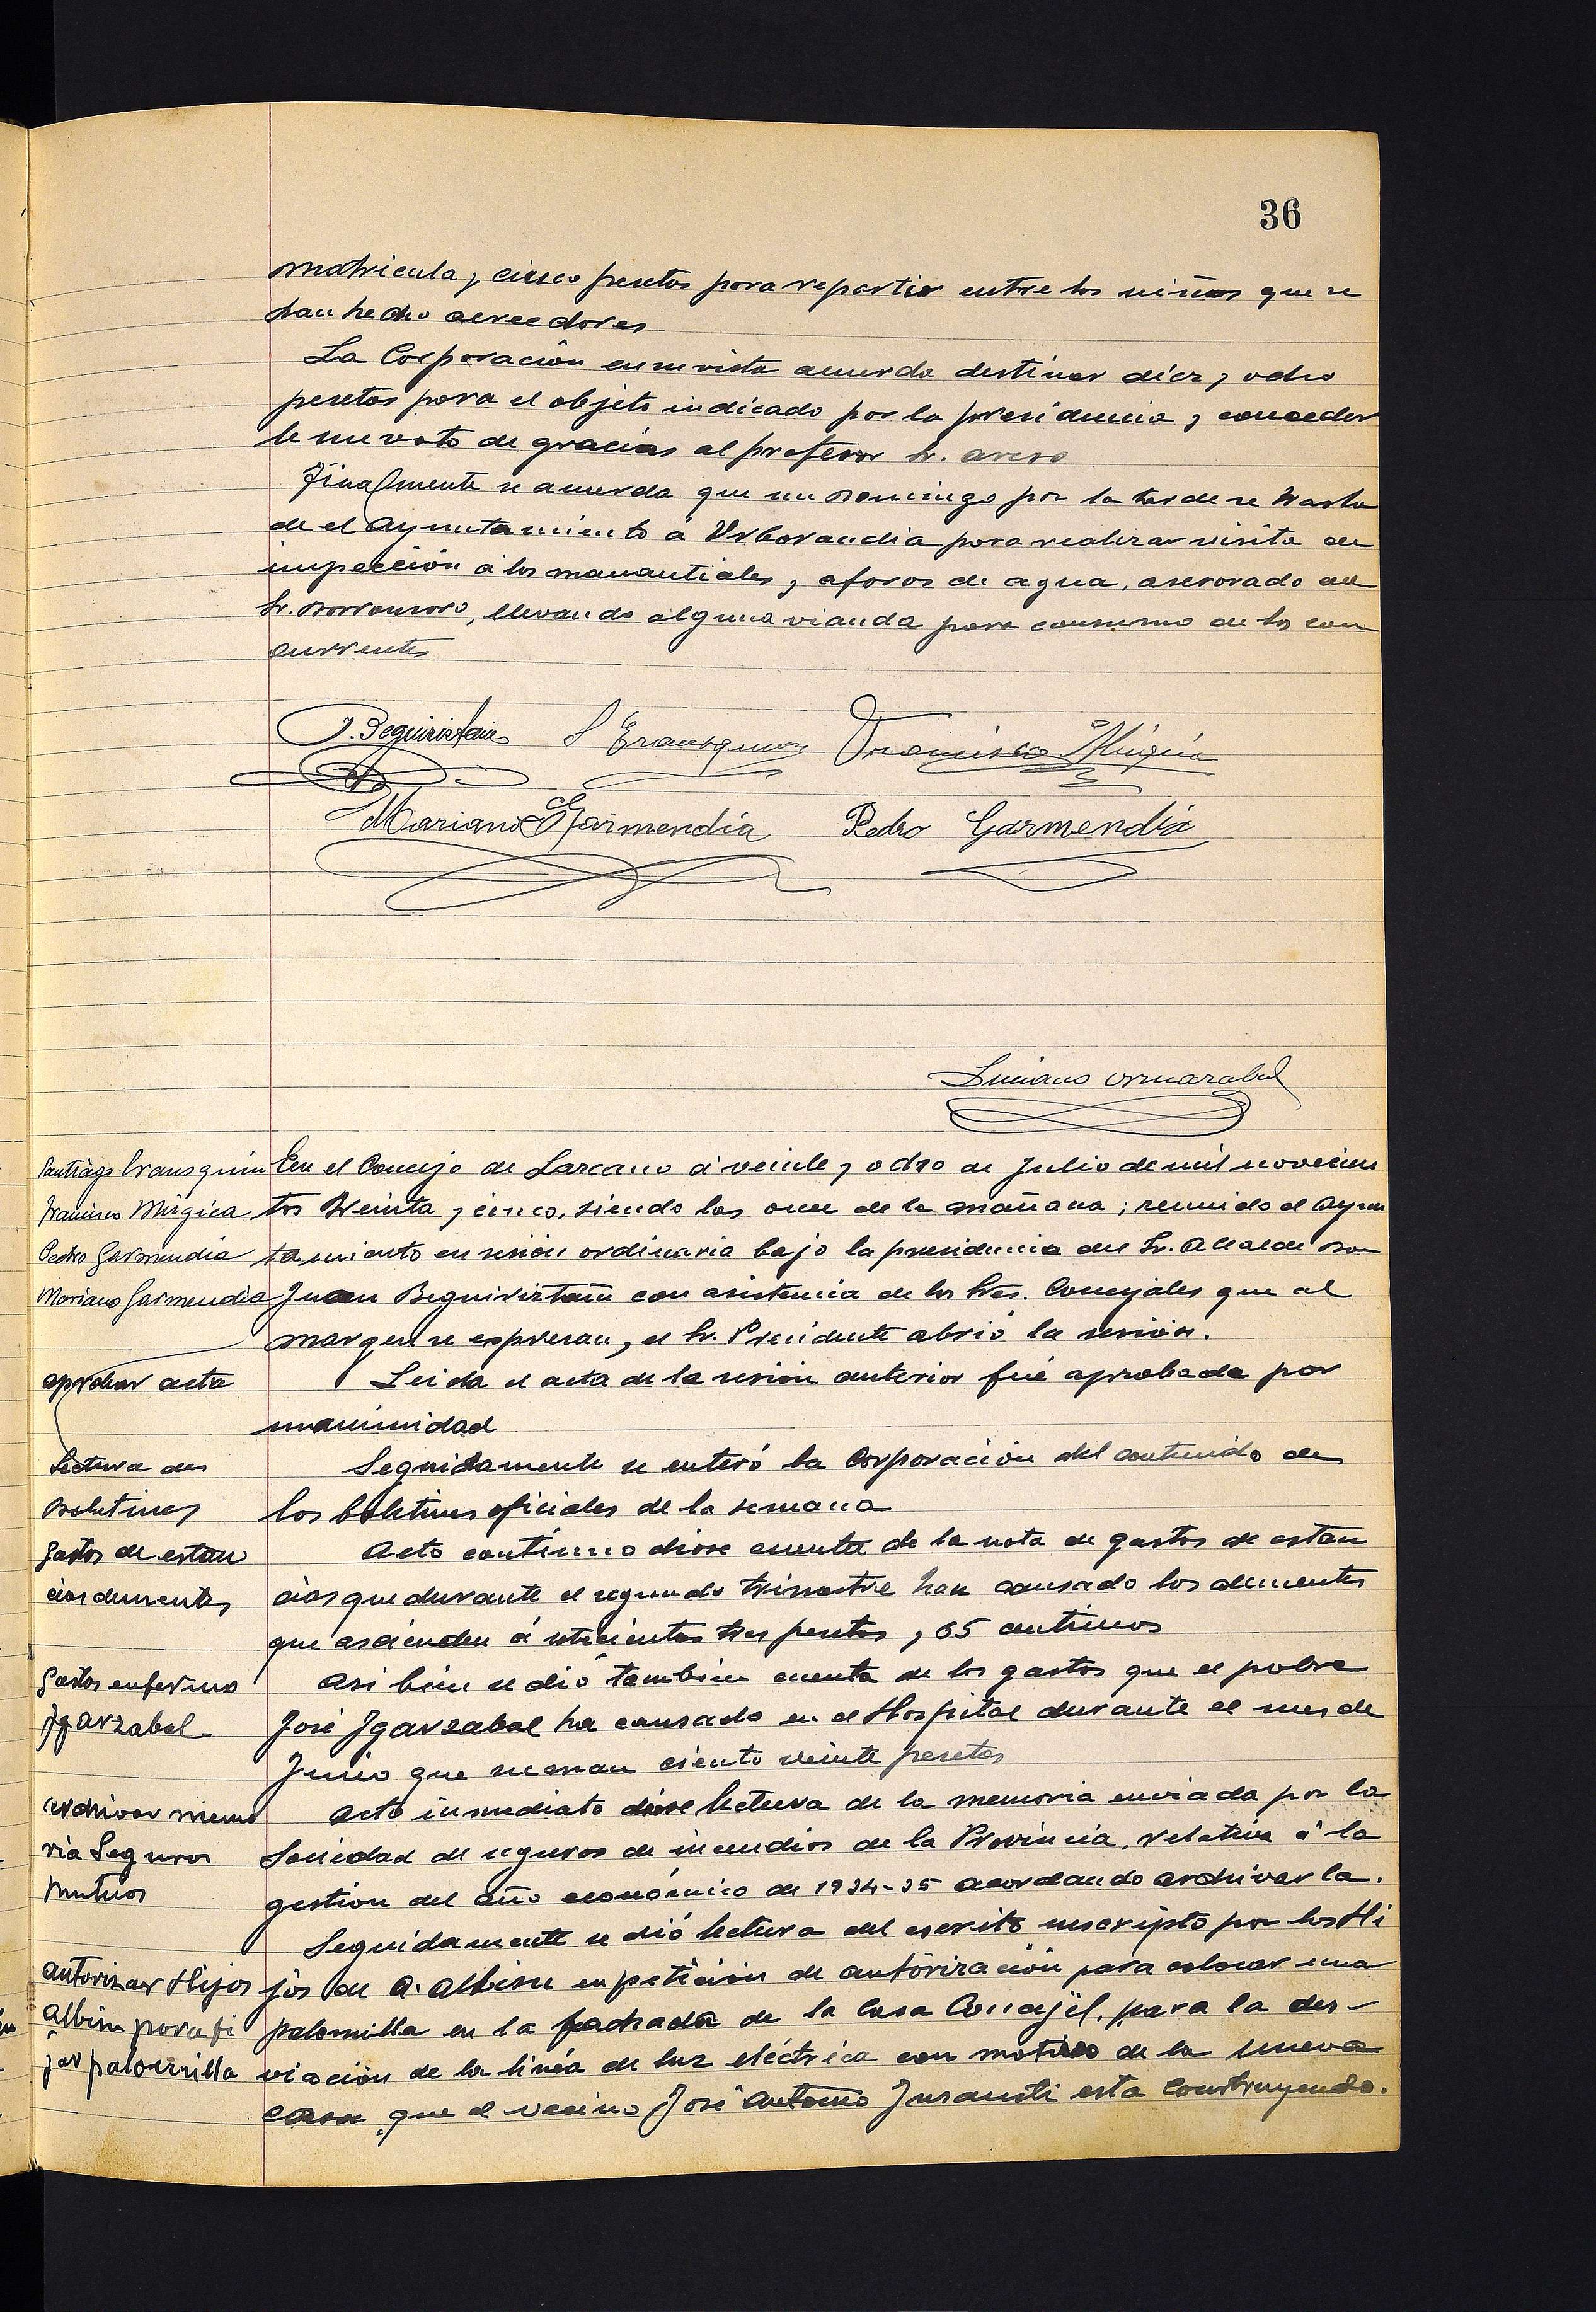 36
matricula, cinco pesetas para repartir entre los niños que se
han hecho acreedores
La Corporación en su vista acuerda destinar diez y ocho
pesetas para el objeto indicado por la presidencia y conceder
le un voto de gracias al profesor Sr.
Finalmente se acuerda que un Domingo por la tarde se trasla
de el Ayuntamiento á Urbarandia para realizar visita de
inspección á los manantiales y aforos de agua, asesorado del
Sr. Borronsoro, llevando alguna vianda para consumo de los con
currentes
J. Beguiristain S Erausquin Francisco Múgica
Mariano Garmendia Pedro Garmendia
Luciano Ormazabal
Santiago Erausquin
Francisco Múgica
Pedro Garmendia
Mariano Garmendia
En el Concejo de Lazcano á veinte y ocho de Julio de mil novecien
tos treinta y cinco, siendo las once de la mañana; reunido el Ayun
tamiento en sesión ordinaria bajo la presidencia del Sr. Alcalde Don
Juan Beguiristain con asistencia de los Sres. Concejales que al
margen se expresan, el Sr. Presidente abrió la sesión.
aprobar acta
Leida el acta de la sesión anterior fué aprobada por
unanimidad
Lectura de
Boletines
Seguidamente se enteró la Corporación del contenido de
los boletines oficiales de la semana
Gastos de estan
cias dementes
Acto continuo diose cuenta de la nota de gastos de estan
cias que durante el segundo trimestre han causado los dementes
que ascienden á setecientas tres pesetas y 65 centimos
Gastos enfermo
Igarzabal
Asi bien se dió también cuenta de los gastos que el pobre
José Igarzabal ha causado en el Hospital durante el mes de
Junio que suman ciento veinte pesetas
archivar memo
ria Seguros
Mutuos
Acto inmediato diose lectura de la memoria enviada por la
Sociedad de seguros de incendios de la Provincia, relativa á la
gestion del año económico de 1934-35 acordando archivarla.
autorizar Hijos
Albisu para fi
jar palomilla
Seguidamente se dió lectura del escrito suscripto por los Hi
jos de A. Albisu en petición de autorización para colocar una
palomilla en la fachada de la Casa Concejil, para la des-
viación de la linéa de luz eléctrica con motivo de la nueva
casa que el vecino José Antonio Insausti esta construyendo.